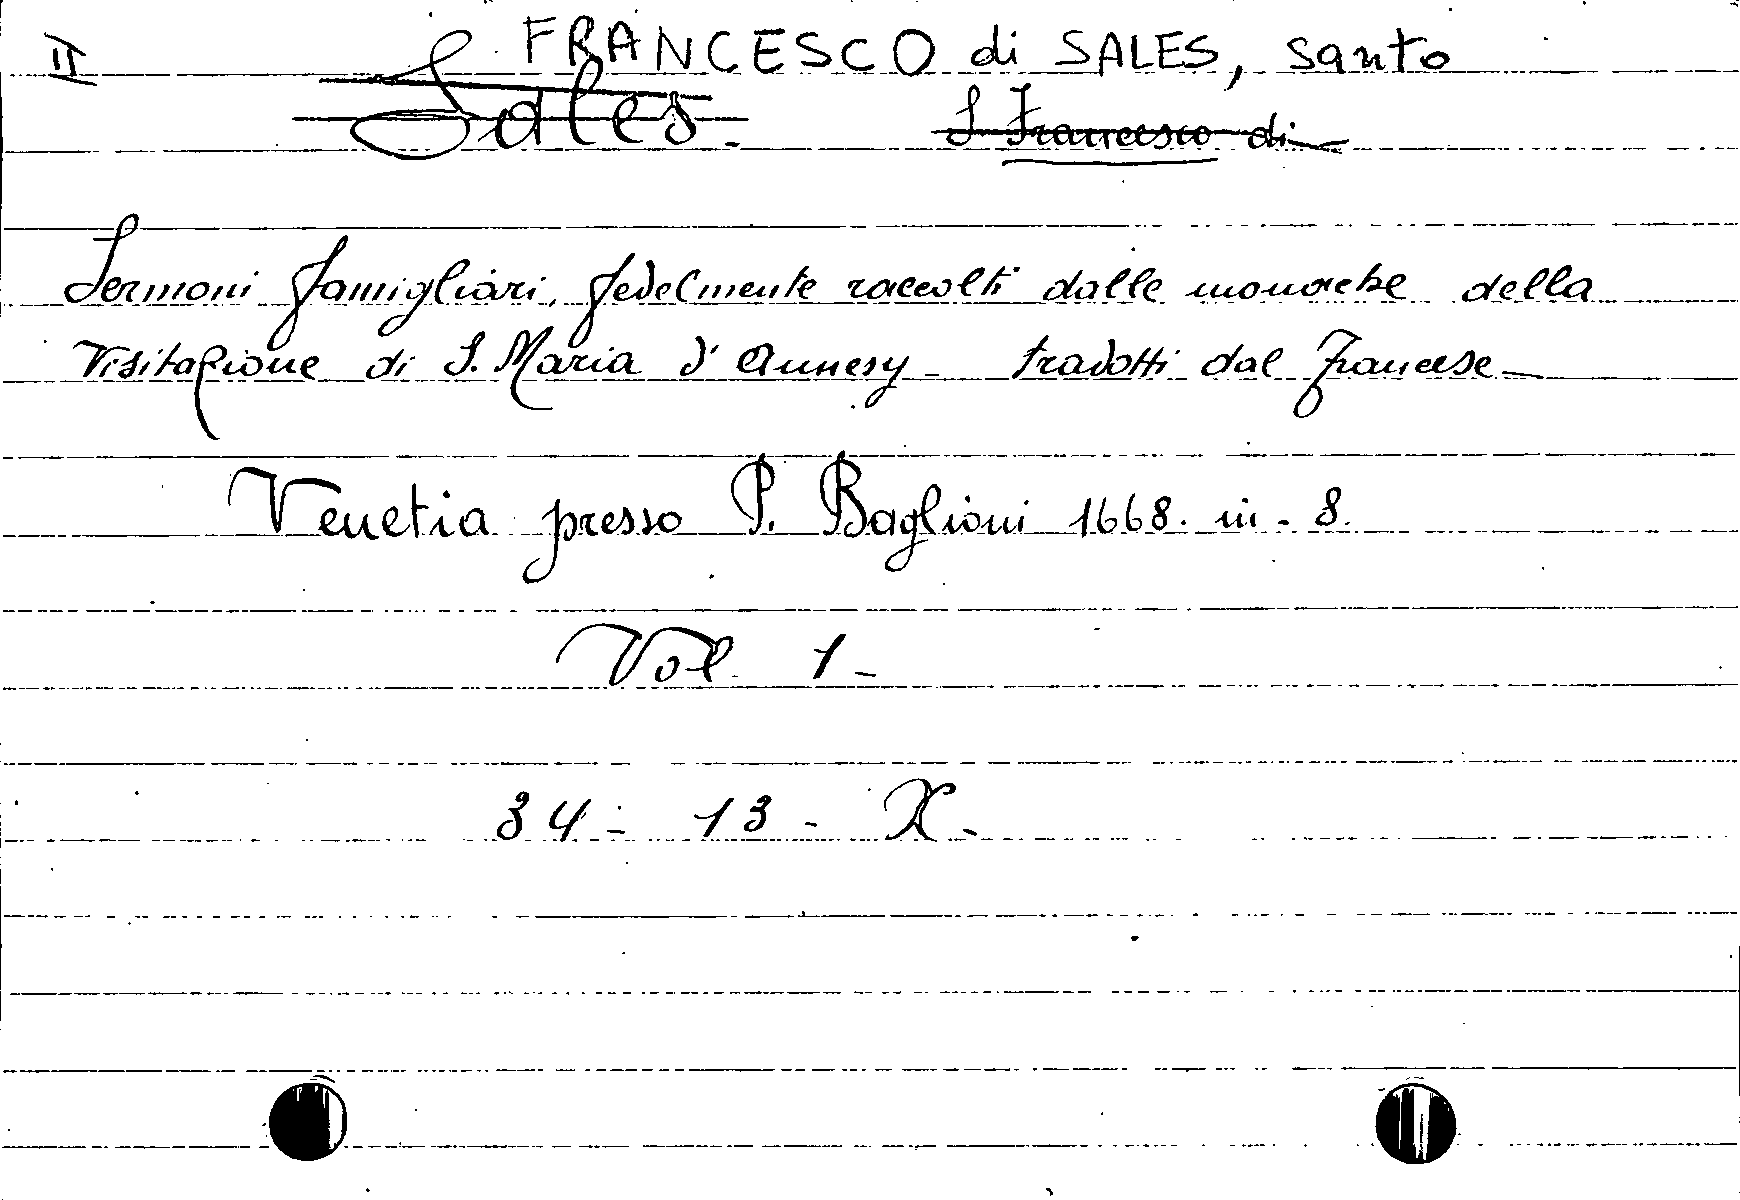 II FRANCESCO di SALES, santo
Sales. S Francesco di
Sermoni famigliari, fedelmente raccolti dalle monache della
Visitazione di S. Maria d'Annesy - tradotti dal francese -
Venetia presso P. Baglioni 1668. in - 8.
Vol. 1 -
34 - 13 - X.